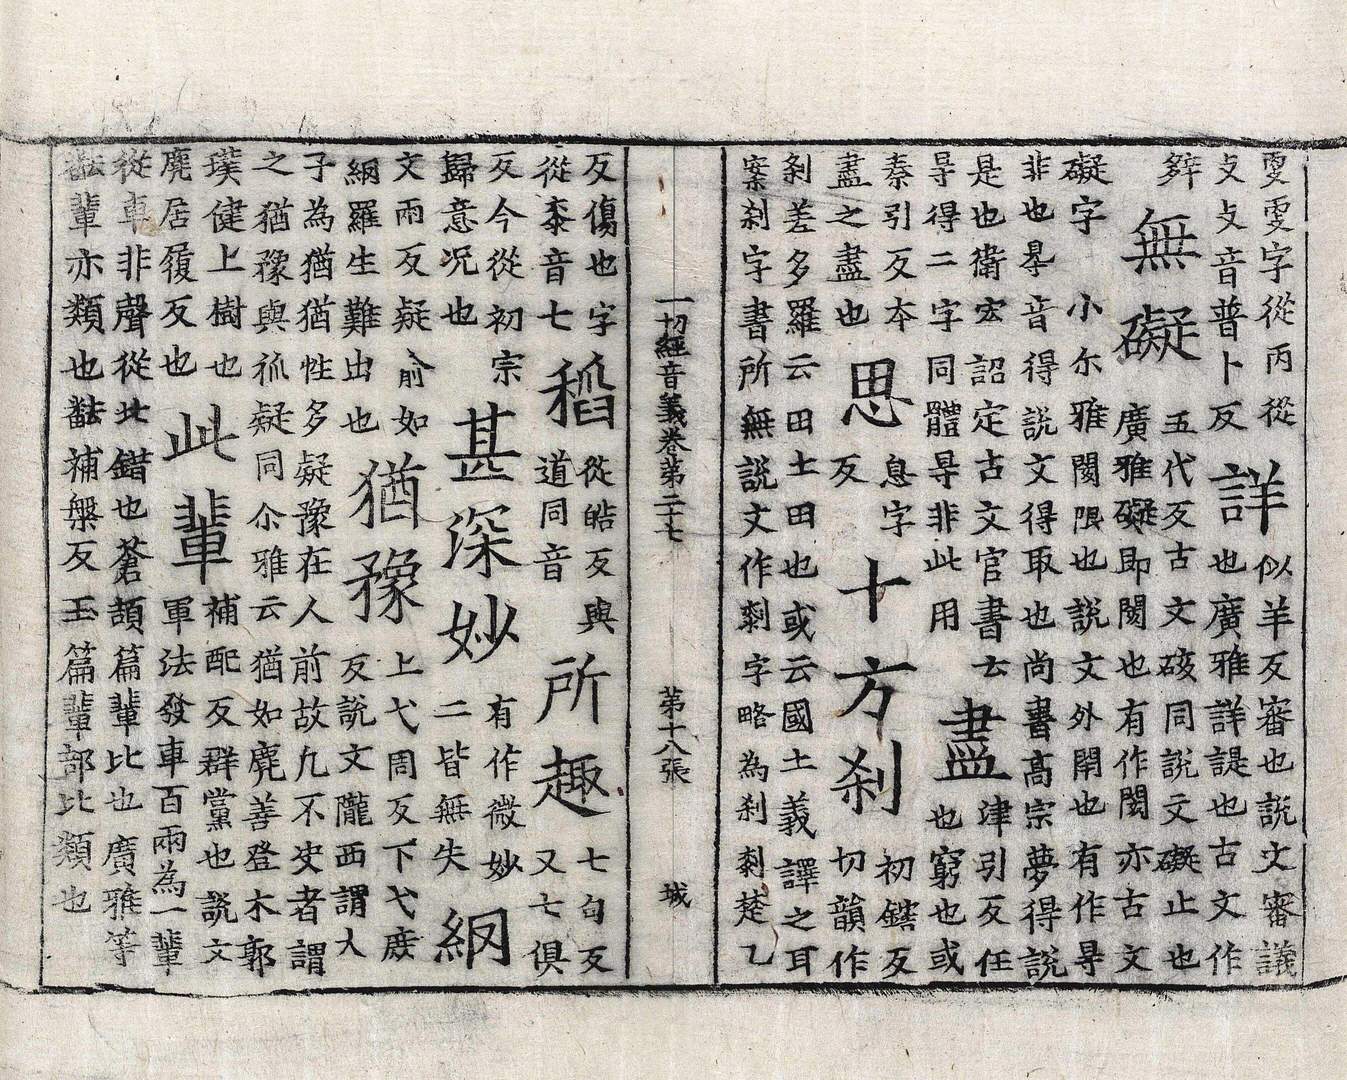 㪅㪅字從丙從
攴攴音普卜反
詳
似羊反審也說文審議
也廣雅詳諟也古文作
無礙
五代反古文硋同說文礙止也
廣雅礙即閡也有作閡亦古文
礙字 小尒雅閡限也說文外閉也有作㝵
非也㝵音得說文得取也尚書高宗夢得說
是也衛宏詔定古文官書云
㝵得二字同體㝵非此用
盡
津引反任
也窮也或
秦引反本
盡之盡也
思
息字
反
十方刹
初鎋反
切韻作
刹差多羅云田土田也或云國土義譯之耳
案刹字書所無說文作剩字略為刹剩楚乙
一切經音義卷第二十七 第十八張 城
反傷也字
從桼音七
稻
徒皓反與
道同音
所趣
七句反
又七俱
反今從初宗
歸意况也
甚深妙
有作微妙
二皆無失
網
文兩反疑俞如
網羅生難出也
猶豫
上弋周反下弋庶
反說文隴西謂犬
子為猶猶性多疑豫在人前故凡不决者謂
之猶豫與狐疑同尒雅云猶如麂善登木郭
璞健上樹也
麂居履反也
此輩
補配反群黨也說文
軍法發車百兩為一輩
從車非聲從北錯也蒼頡篇輩比也廣雅等
輩亦類也補盤反玉篇輩部比類也